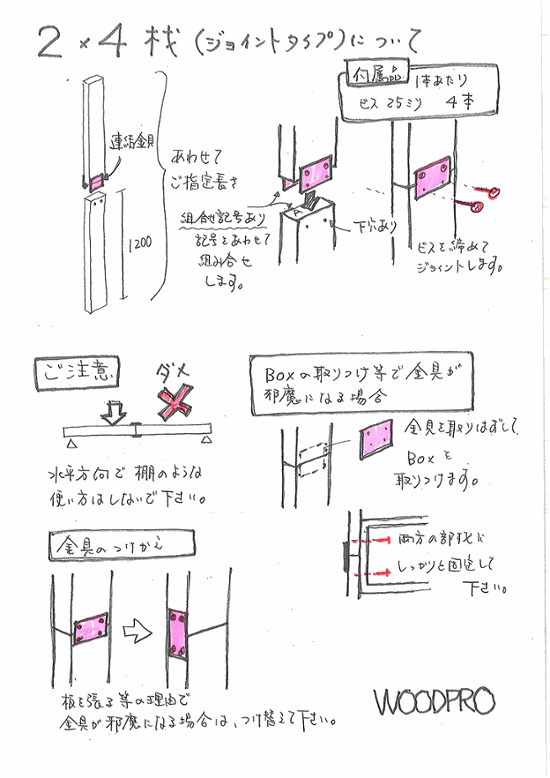 2×4 桟 (ジョイントタイプ)について
付属品
1本あたり
ビス 25ミリ 4本
連結金具
あわせて
ご指定長さ
1200
組合せ記号あり
記号をあわせて
組み合せ
します。
A
下穴あり
ビスを締めて
ジョイントします。
ご注意
ダメ
水平方向で 棚のような
使い方はしないで下さい。
Boxの取りつけ等で金具が
邪魔になる場合
金具を取りはずして
Boxを
取りつけます。
両方の部材に
しっかりと固定して
下さい。
金具のつけかえ
板を張る等の理由で
金具が邪魔になる場合は、つけ替えて下さい。
WOODPRO